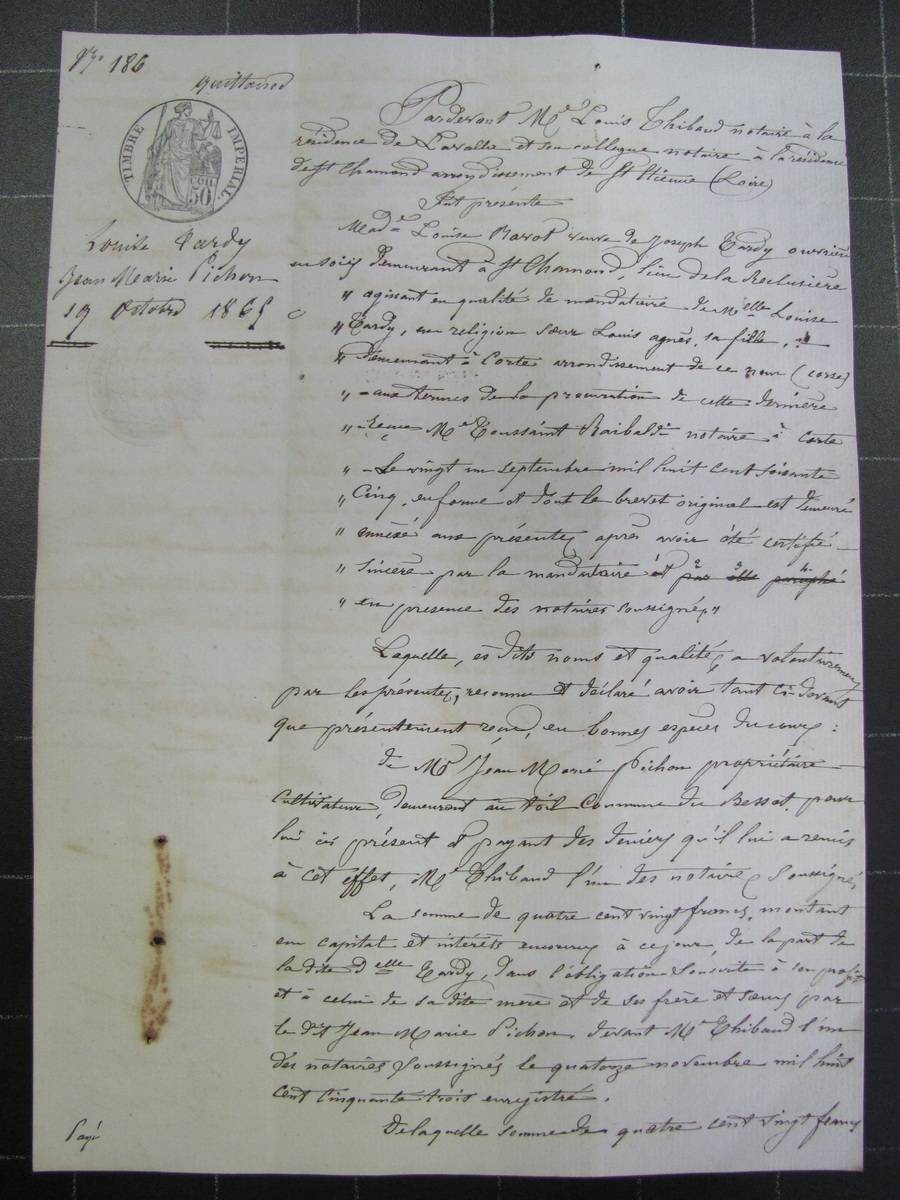 N° 186
quittance
TIMBRE IMPERIAL
50
Louise Tardy
Jean Marie Pichon
19 Octobre 1865
Pardevant Me Louis Thibaud notaire à la
résidence de Lavalla et son collègue notaire à la résidence
de St Chamond arrondissement de St Etienne (Loire)
Fut présente
Made Louise Ravot veuve de Joseph Tardy ouvrière
en soie, demeurant à St Chamond, lieu de la Reclusière
" agissant en qualité de mandataire de Melle Louise
" Tardy, en religion sœur Louis agnès, sa fille,
" Demeurant à Corte arrondissement de ce nom (corse)
" - aux termes de la procuration de cette dernière
" - reçue Me Toussaint Raibaldi notaire à Corte
" - Le vingt un septembre mil huit cent soixante
" Cinq, en forme et dont le brevet original est demeuré
" annexé aux présentes après avoir été certifié -
" sincère par la mandataire et par elle paraphé
" en présence des notaires soussignés "
Laquelle, es dits noms et qualités, a volontairement
par les présentes, reconnu et déclaré avoir tant ci-devant
que présentement reçu, en bonnes espèces du cours :
de Mr Jean Marie Pichon propriétaire
Cultivateur, demeurant au toil Commune du Bessat, pour
lui ici présent et payant des deniers qu'il lui a remis
à cet effet, Me Thibaud l'un des notaires soussignés
La somme de quatre cent vingt francs, montant
en capital et intérêts encourus à ce jour, de la part de
la dite Delle Tardy, dans l'obligation souscrite à son profit
et à celui de sa dite mère et de ses frère et sœurs par
le dit Jean Marie Pichon devant Me Thibaud l'un
des notaires soussignés le quatorze novembre mil huit
cent cinquante trois enregistré.
De laquelle somme de quatre cent vingt francs
Payé